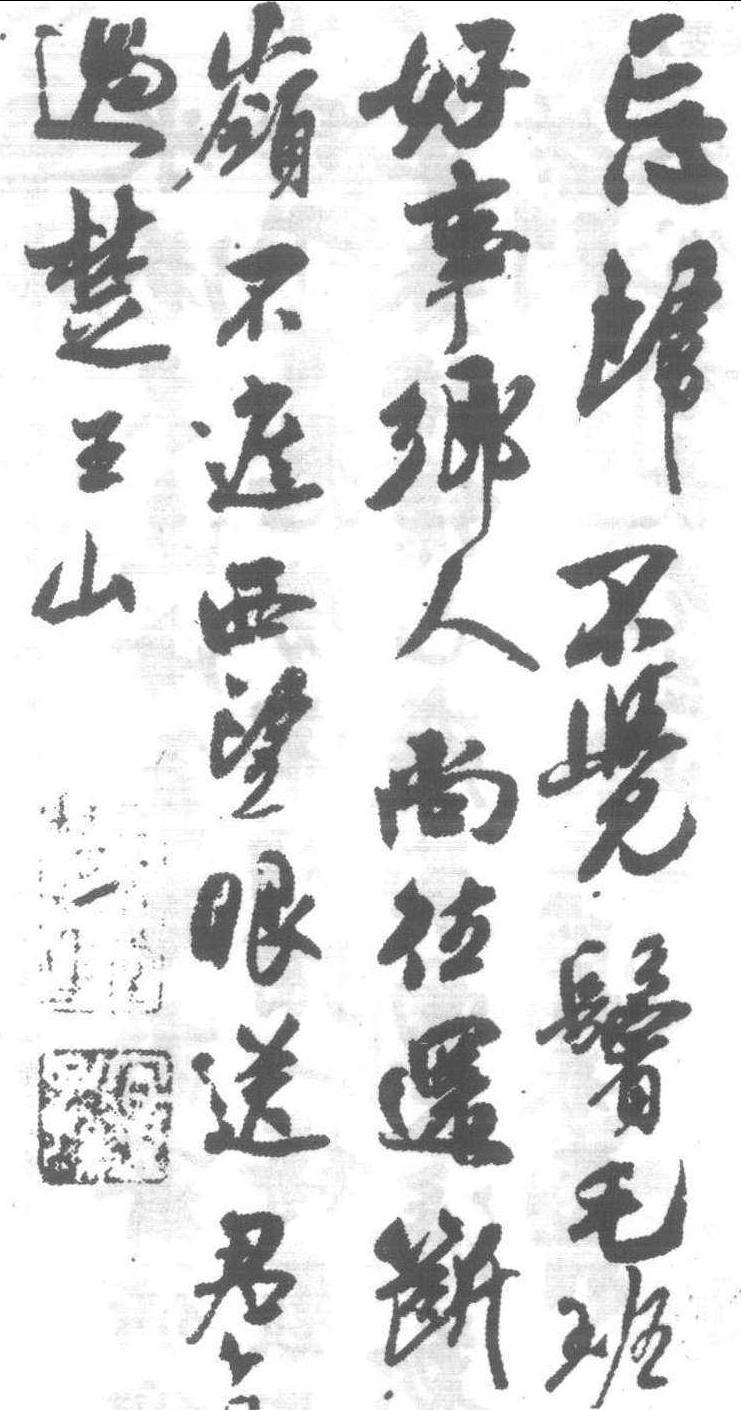 忘歸不覺鬢毛班
好事鄉人尚往還斷
嶺不遮西望眼送君
過楚王山